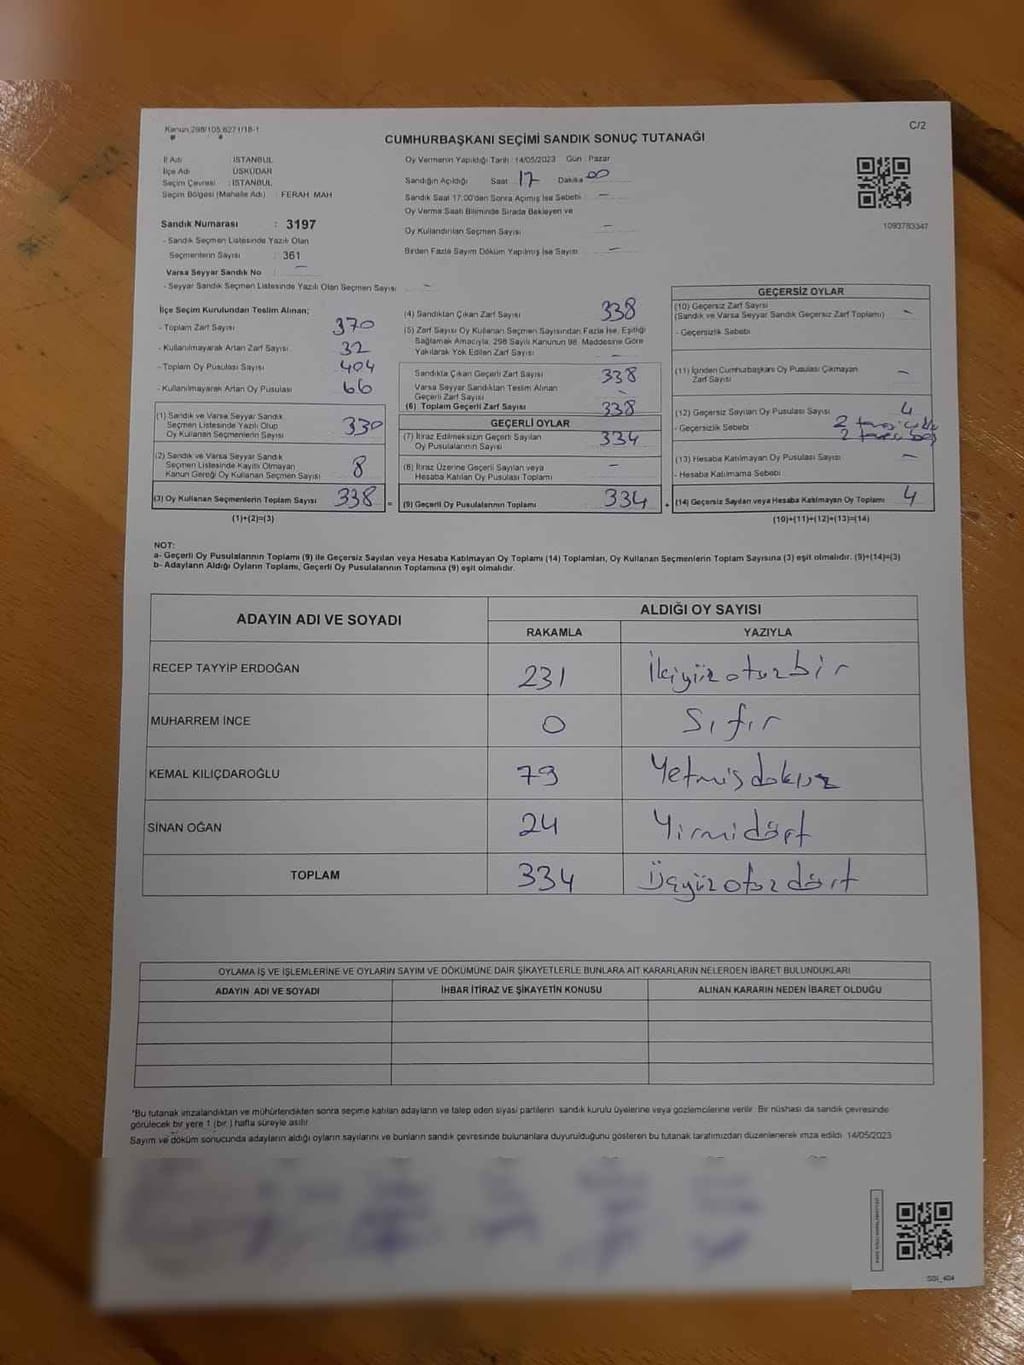 Kanun 298/105,6271/18-1
C/2
CUMHURBAŞKANI SEÇİMİ SANDIK SONUÇ TUTANAĞI
İl Adı : İSTANBUL
İlçe Adı : ÜSKÜDAR
Seçim Çevresi : İSTANBUL
Seçim Bölgesi (Mahalle Adı) : FERAH MAH
Sandık Numarası : 3197
- Sandık Seçmen Listesinde Yazılı Olan
Seçmenlerin Sayısı : 361
Varsa Seyyar Sandık No : —
- Seyyar Sandık Seçmen Listesinde Yazılı Olan Seçmen Sayısı : —
Oy Vermenin Yapıldığı Tarih : 14/05/2023 Gün : Pazar
Sandığın Açıldığı Saat 17 Dakika 00
Sandık Saat 17:00'den Sonra Açımış İse Sebebi : —
Oy Verme Saati Bitiminde Sırada Bekleyen ve
Oy Kullandırılan Seçmen Sayısı : —
Birden Fazla Sayım Döküm Yapılmış İse Sayısı : —
1093783347
İlçe Seçim Kurulundan Teslim Alınan;
- Toplam Zarf Sayısı : 370
- Kullanılmayarak Artan Zarf Sayısı : 32
- Toplam Oy Pusulası Sayısı : 404
- Kullanılmayarak Artan Oy Pusulası : 66
(1) Sandık ve Varsa Seyyar Sandık
Seçmen Listesinde Yazılı Olup
Oy Kullanan Seçmenlerin Sayısı : 330
(2) Sandık ve Varsa Seyyar Sandık
Seçmen Listesinde Kayıtlı Olmayan
Kanun Gereği Oy Kullanan Seçmen Sayısı : 8
(3) Oy Kullanan Seçmenlerin Toplam Sayısı : 338 =
(1)+(2)=(3)
(4) Sandıktan Çıkan Zarf Sayısı : 338
(5) Zarf Sayısı Oy Kullanan Seçmen Sayısından Fazla İse, Eşitliği
Sağlamak Amacıyla, 298 Sayılı Kanunun 98. Maddesine Göre
Yakılarak Yok Edilen Zarf Sayısı : —
Sandıkta Çıkan Geçerli Zarf Sayısı : 338
Varsa Seyyar Sandıktan Teslim Alınan
Geçerli Zarf Sayısı : -
(6) Toplam Geçerli Zarf Sayısı : 338
GEÇERLİ OYLAR
(7) İtiraz Edilmeksizin Geçerli Sayılan
Oy Pusulası Sayısı : 334
(8) İtiraz Üzerine Geçerli Sayılan veya
Hesaba Katılan Oy Pusulası Toplamı : —
(9) Geçerli Oy Pusulalarının Toplamı : 334 +
GEÇERSİZ OYLAR
(10) Geçersiz Zarf Sayısı
(Sandık ve Varsa Seyyar Sandık Geçersiz Zarf Toplamı) : —
- Geçersizlik Sebebi
(11) İçinden Cumhurbaşkanı Oy Pusulası Çıkmayan
Zarf Sayısı : —
(12) Geçersiz Sayılan Oy Pusulası Sayısı : 4
- Geçersizlik Sebebi : 2
2
(13) Hesaba Katılmayan Oy Pusulası Sayısı : —
- Hesaba Katılmama Sebebi
(14) Geçersiz Sayılan veya Hesaba Katılmayan Oy Toplamı : 4
(10)+(11)+(12)+(13)=(14)
NOT:
a- Geçerli Oy Pusulalarının Toplamı (9) ile Geçersiz Sayılan veya Hesaba Katılmayan Oy Toplamı (14) Toplamları, Oy Kullanan Seçmenlerin Toplam Sayısına (3) eşit olmalıdır. (9)+(14)=(3)
b- Adayların Aldığı Oyların Toplamı, Geçerli Oy Pusulalarının Toplamına (9) eşit olmalıdır.
ADAYIN ADI VE SOYADI
ALDIĞI OY SAYISI
RAKAMLA YAZIYLA
RECEP TAYYİP ERDOĞAN 231 İkiyüzotuzbir
MUHARREM İNCE 0 Sıfır
KEMAL KILIÇDAROĞLU 79 Yetmişdokuz
SİNAN OĞAN 24 Yirmidört
TOPLAM 334 Üçyüzotuzdört
OYLAMA İŞ VE İŞLEMLERİNE VE OYLARIN SAYIM VE DÖKÜMÜNE DAİR ŞİKAYETLERLE BUNLARA AİT KARARLARIN NELERDEN İBARET BULUNDUKLARI
ADAYIN ADI VE SOYADI İHBAR İTİRAZ VE ŞİKAYETİN KONUSU ALINAN KARARIN NEDEN İBARET OLDUĞU
*Bu tutanak imzalandıktan ve mühürlendikten sonra seçime katılan adayların ve talep eden siyasi partilerin sandık kurulu üyelerine veya gözlemcilerine verilir. Bir nüshası da sandık çevresinde
görülecek bir yere 1 (bir) hafta süreyle asılır
Sayım ve döküm sonucunda adayların aldığı oyların sayılarını ve bunların sandık çevresinde bulunanlara duyurulduğunu gösteren bu tutanak tarafımızdan düzenlenerek imza edildi. 14/05/2023